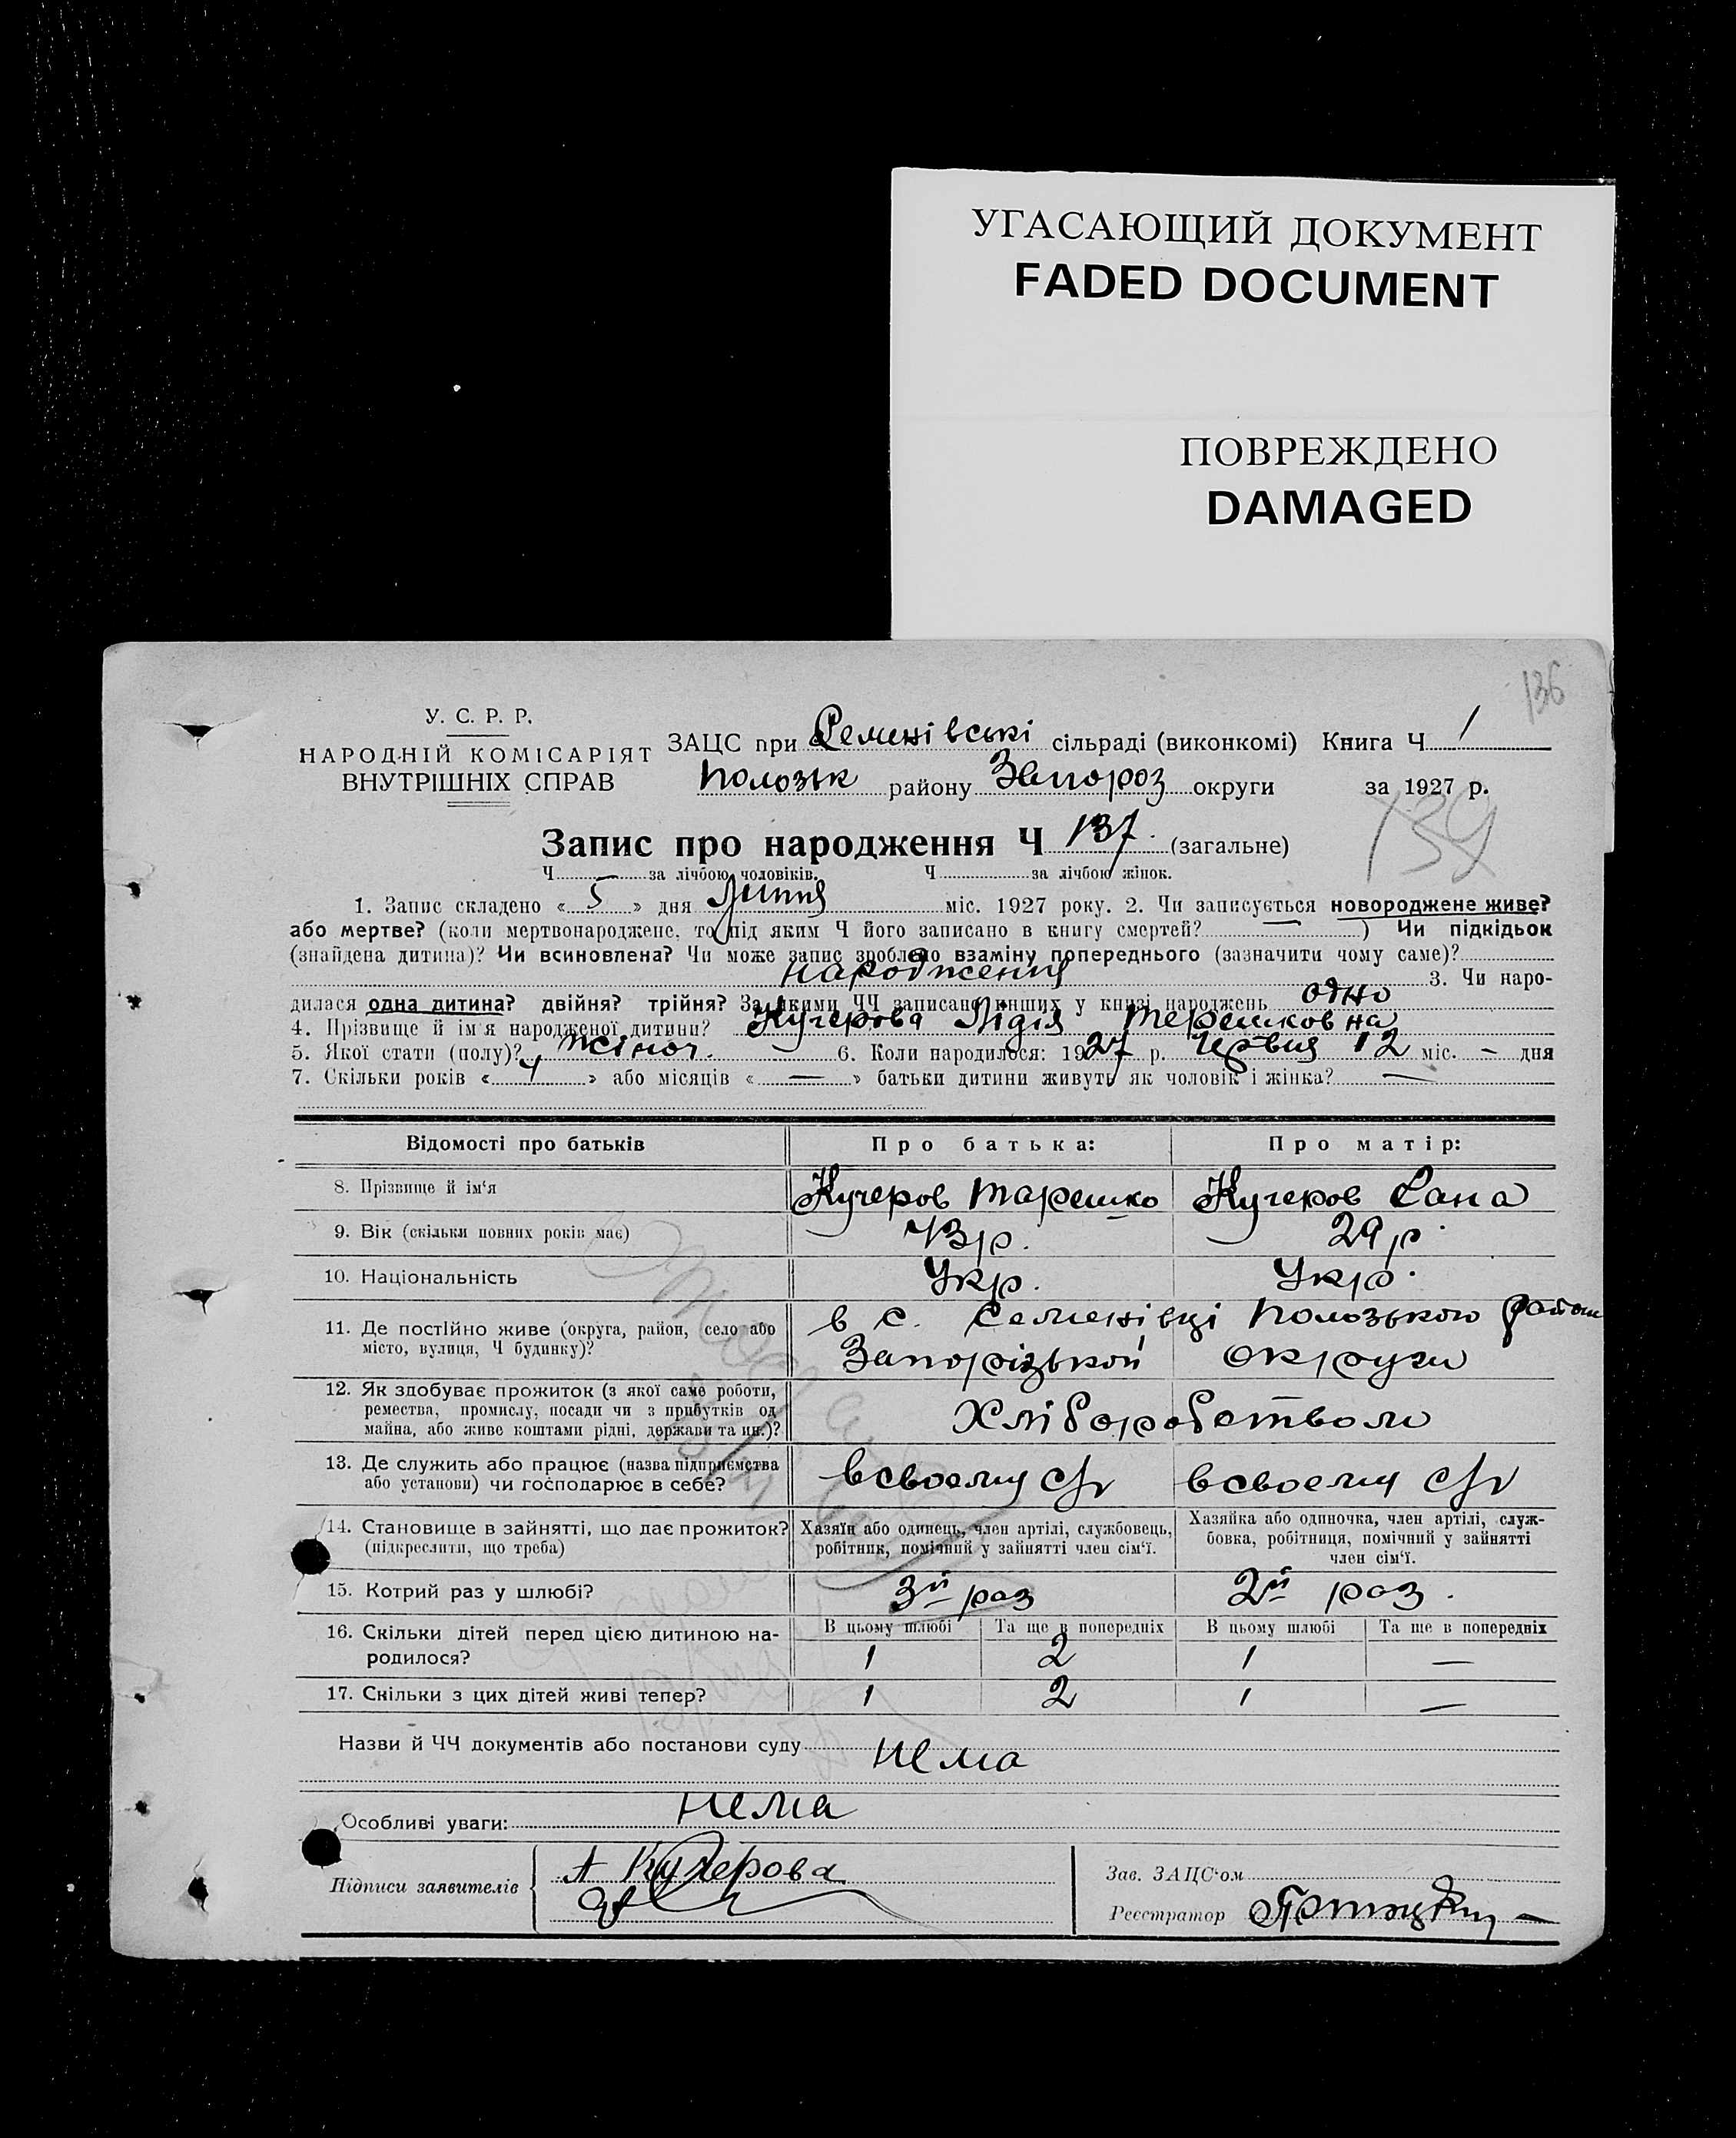 УГАСАЮЩИЙ ДОКУМЕНТ
FADED DOCUMENT
ПОВРЕЖДЕНО
DAMAGED
136
У. С. Р. Р.
НАРОДНІЙ КОМІСАРІЯТ
ВНУТРІШНІХ СПРАВ
ЗАЦС при Семенівські сільраді (виконкомі) Книга Ч 1
Полозьк району Запороз округи за 1927 р.
139
Запис про народження Ч 137. (загальне)
Ч за лічбою чоловіків. Ч за лічбою жінок.
1. Запис складено « 5 » дня Липня міс. 1927 року. 2. Чи записується новороджене живе?
або мертве? (коли мертвонароджене, то під яким Ч його записано в книгу смертей? — ) Чи підкідьок
(знайдена дитина)? Чи всиновлена? Чи може запис зроблено взаміну попереднього (зазначити чому саме)?
народження 3. Чи наро-
дилася одна дитина? двійня? трійня? За якими ЧЧ записано инших у книзі народжень одно
4. Прізвище й ім'я народженої дитини? Кучерова Лідія Терешковна
5. Якої стати (полу)? жіноч. 6. Коли народилося: 1927 р. Червня 12 міс. — дня
7. Скільки років « 4 » або місяців « — » батьки дитини живуть як чоловік і жінка? —
Відомості про батьків Про батька: Про матір:
8. Прізвище й ім'я Кучеров Терешко Кучеров
9. Вік (скільки повних років має) 43 р. 29 р.
10. Національність Укр. Укр.
11. Де постійно живе (округа, район, село або
місто, вулиця, Ч будинку)?
в с. Семенівці Полозького район
Запорізької округи
12. Як здобуває прожиток (з якої саме роботи,
ремества, промислу, посади чи з прибутків од
майна, або живе коштами рідні, держави та ин.)?
Хліборобством
13. Де служить або працює (назва підприємства
або установи) чи господарює в себе?
в своему с/г в своему с/г
14. Становище в зайнятті, що дає прожиток?
(підкреслити, що треба)
Хазяїн або одинець, член артілі, службовець,
робітник, помічний у зайнятті член сім'ї.
Хазяйка або одиночка, член артілі, служ-
бовка, робітниця, помічний у зайнятті
член сім'ї.
15. Котрий раз у шлюбі? 3й раз 2й раз.
16. Скільки дітей перед цією дитиною на-
родилося?
В цьому шлюбі Та ще в попередніх В цьому шлюбі Та ще в попередніх
1 2 1 —
17. Скільки з цих дітей живі тепер? 1 2 1 —
Назви й ЧЧ документів або постанови суду нема
Особливі уваги: нема
Підписи заявителів А Кучерова
Зав. ЗАЦС'ом
Реєстратор